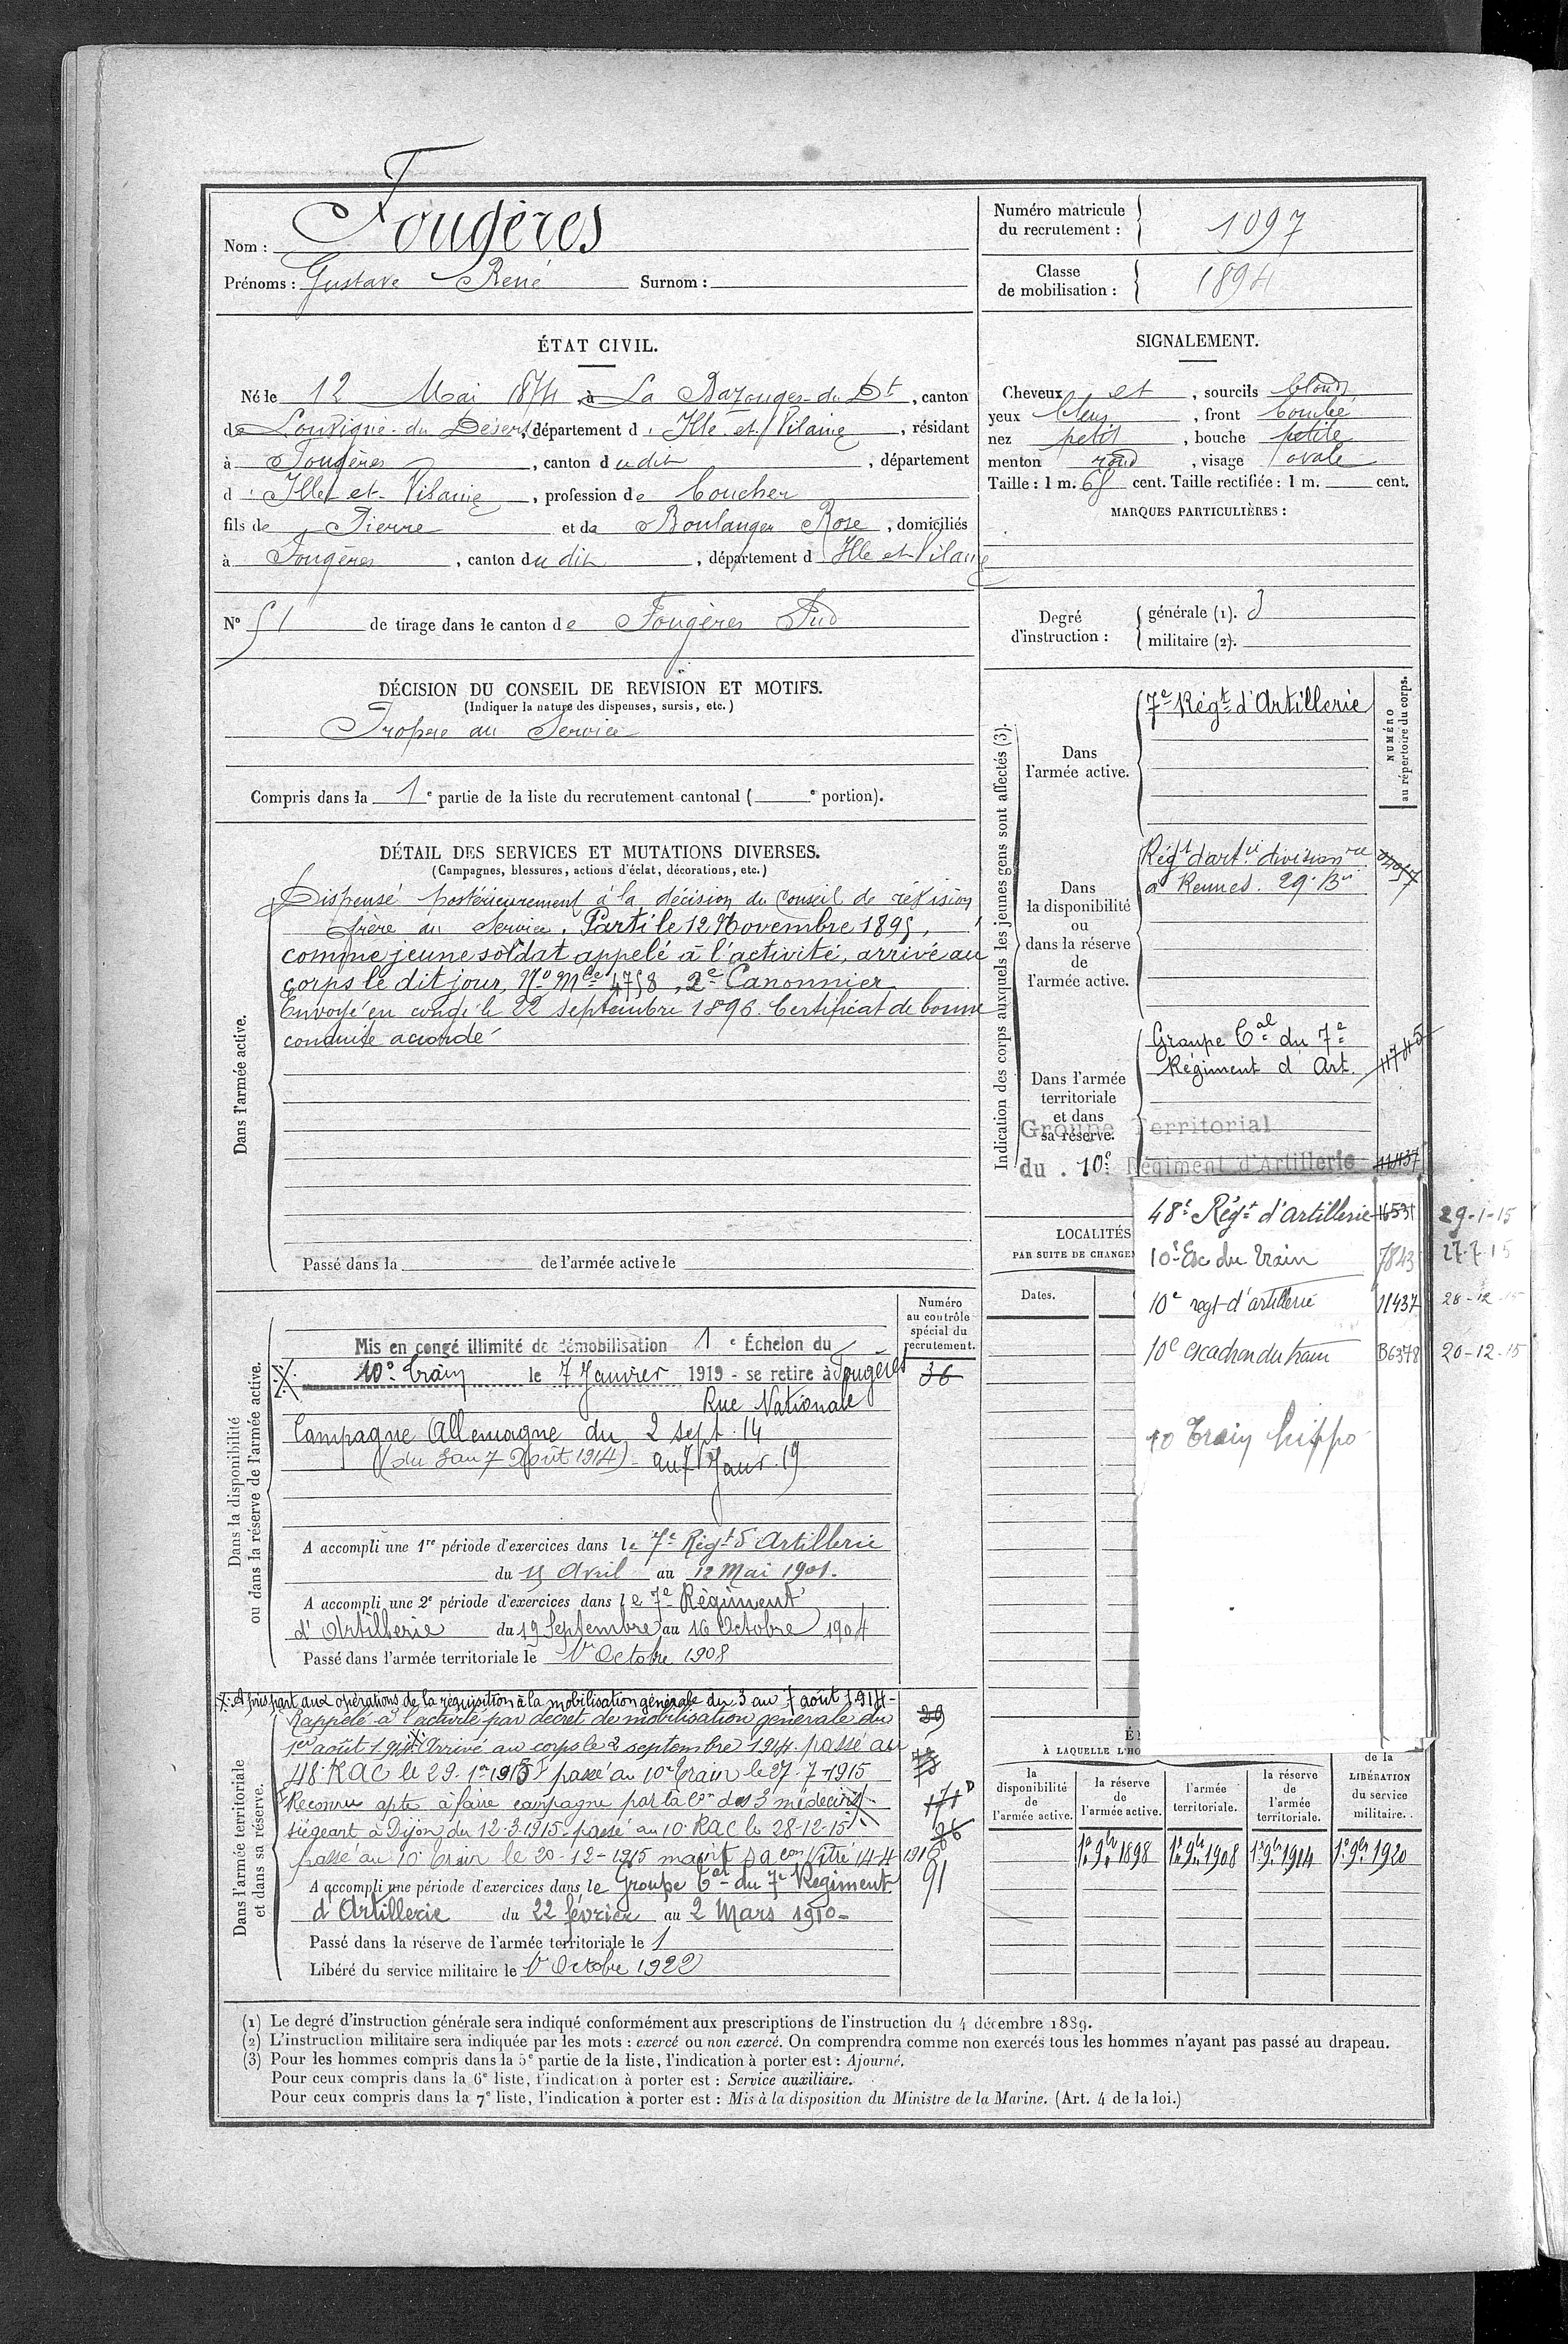 Nom : Fougères
Prénoms : Gustave René Surnom :
Numéro matricule du recrutement : 1097
Classe de mobilisation : 1894
ÉTAT CIVIL.
Né le 12 Mai 1874, à La Bazouges-du-Dt, canton
de Louvigné-du-Désert, département d'Ille-et-Vilaine, résidant
à Fougères, canton dudit, département
d'Ille-et-Vilaine, profession de boucher
fils de Pierre et de Boulanger Rose, domiciliés
à Fougères, canton du dit, département d Ille et Vilaine
N° 51 de tirage dans le canton de Fougères Sud
SIGNALEMENT.
Cheveux et, sourcils blonds
yeux bleus, front bombé
nez petit, bouche petite
menton rond, visage ovale
Taille : 1 m. 68 cent. Taille rectifiée : 1 m. cent.
MARQUES PARTICULIÈRES :
Degré d'instruction :
générale (1). 3
militaire (2).
DÉCISION DU CONSEIL DE REVISION ET MOTIFS.
(Indiquer la nature des dispenses, sursis, etc.)
Propre au Service
Compris dans la 1e partie de la liste du recrutement cantonal ( e portion).
DÉTAIL DES SERVICES ET MUTATIONS DIVERSES.
(Campagnes, blessures, actions d'éclat, décorations, etc.)
Dans l'armée active.
Dispensé postérieurement à la décision du Conseil de révision
frère au service. Parti le 12 Novembre 1895,
comme jeune soldat appelé à l'activité, arrivé au
corps le dit jour, No Mle 4758, 2e Canonnier
Envoyé en congé le 22 septembre 1896. Certificat de bonne
conduite accordé
Passé dans la de l'armée active le
Indication des corps auxquels les jeunes gens sont affectés (3).
NUMÉRO au répertoire du corps.
Dans l'armée active.
7e Régt d'Artillerie
Dans la disponibilité ou dans la réserve de l'armée active.
Régt d'artie divisionre
à Rennes. 29e Bie
Dans l'armée territoriale et dans sa réserve.
Groupe Cal du 7e
Régiment d'Art.
11745
Groupe Territorial
du 10e Régiment d'Artillerie 11437
48e Régt d'artillerie 16531 29-1-15
10e Esc du train 7843 27-7-15
10e regt d'artillerie 11437 28-12-15
10e escadron du train B6378 20-12-15
10 Train hippo
LOCALITÉS
PAR SUITE DE CHANGE
Dates.
Dans la disponibilité ou dans la réserve de l'armée active.
Numéro au contrôle spécial du recrutement.
Mis en congé illimité de démobilisation 1e Échelon du
10e Train le 7 Janvier 1919 - se retire à Fougères
36
Rue Nationale
Campagne Allemagne du 2 sept. 14
(du 3 au 7 Août 1914) - au 7 Janv. 19
A accompli une 1re période d'exercices dans le 7e Régt d'Artillerie
du 15 Avril au 12 Mai 1901.
A accompli une 2e période d'exercices dans le 7e Régiment
d'Artillerie du 19 Septembre au 16 Octobre 1904
Passé dans l'armée territoriale le 1er Octobre 1908
Dans l'armée territoriale et dans sa réserve.
X: A pris part aux opérations de la réquisition à la mobilisation générale du 3 au 7 août 1914 -
Rappelé à l'activité par décret de mobilisation générale du
1er août 1914. Arrivé au corps le 2 septembre 1914. passé au
48e RAC le 29. 1er 1915 passé au 10e Train le 27-7-1915
Reconnu apte à faire campagne par la Con des 3 médecins
siégeant à Dijon du 12-3-1915 - passé au 10 RAC le 28-12-15
passé au 10 train le 20-12-1915 maint s a con Vitré 14-4 1916
91
A accompli une période d'exercices dans le Groupe Cal du 7e Régiment
d'Artillerie du 22 février au 2 Mars 1910 -
Passé dans la réserve de l'armée territoriale le 1
Libéré du service militaire le 1er Octobre 1922
À LAQUELLE L'HO
la disponibilité de l'armée active.
la réserve de l'armée active.
l'armée territoriale.
la réserve de l'armée territoriale.
de la LIBÉRATION du service militaire.
1er 9bre 1898
1er 9bre 1908
1er 9bre 1914
1er 9bre 1920
(1) Le degré d'instruction générale sera indiqué conformément aux prescriptions de l'instruction du 4 décembre 1889.
(2) L'instruction militaire sera indiquée par les mots : exercé ou non exercé. On comprendra comme non exercés tous les hommes n'ayant pas passé au drapeau.
(3) Pour les hommes compris dans la 5e partie de la liste, l'indication à porter est : Ajourné.
Pour ceux compris dans la 6e liste, l'indication à porter est : Service auxiliaire.
Pour ceux compris dans la 7e liste, l'indication à porter est : Mis à la disposition du Ministre de la Marine. (Art. 4 de la loi.)